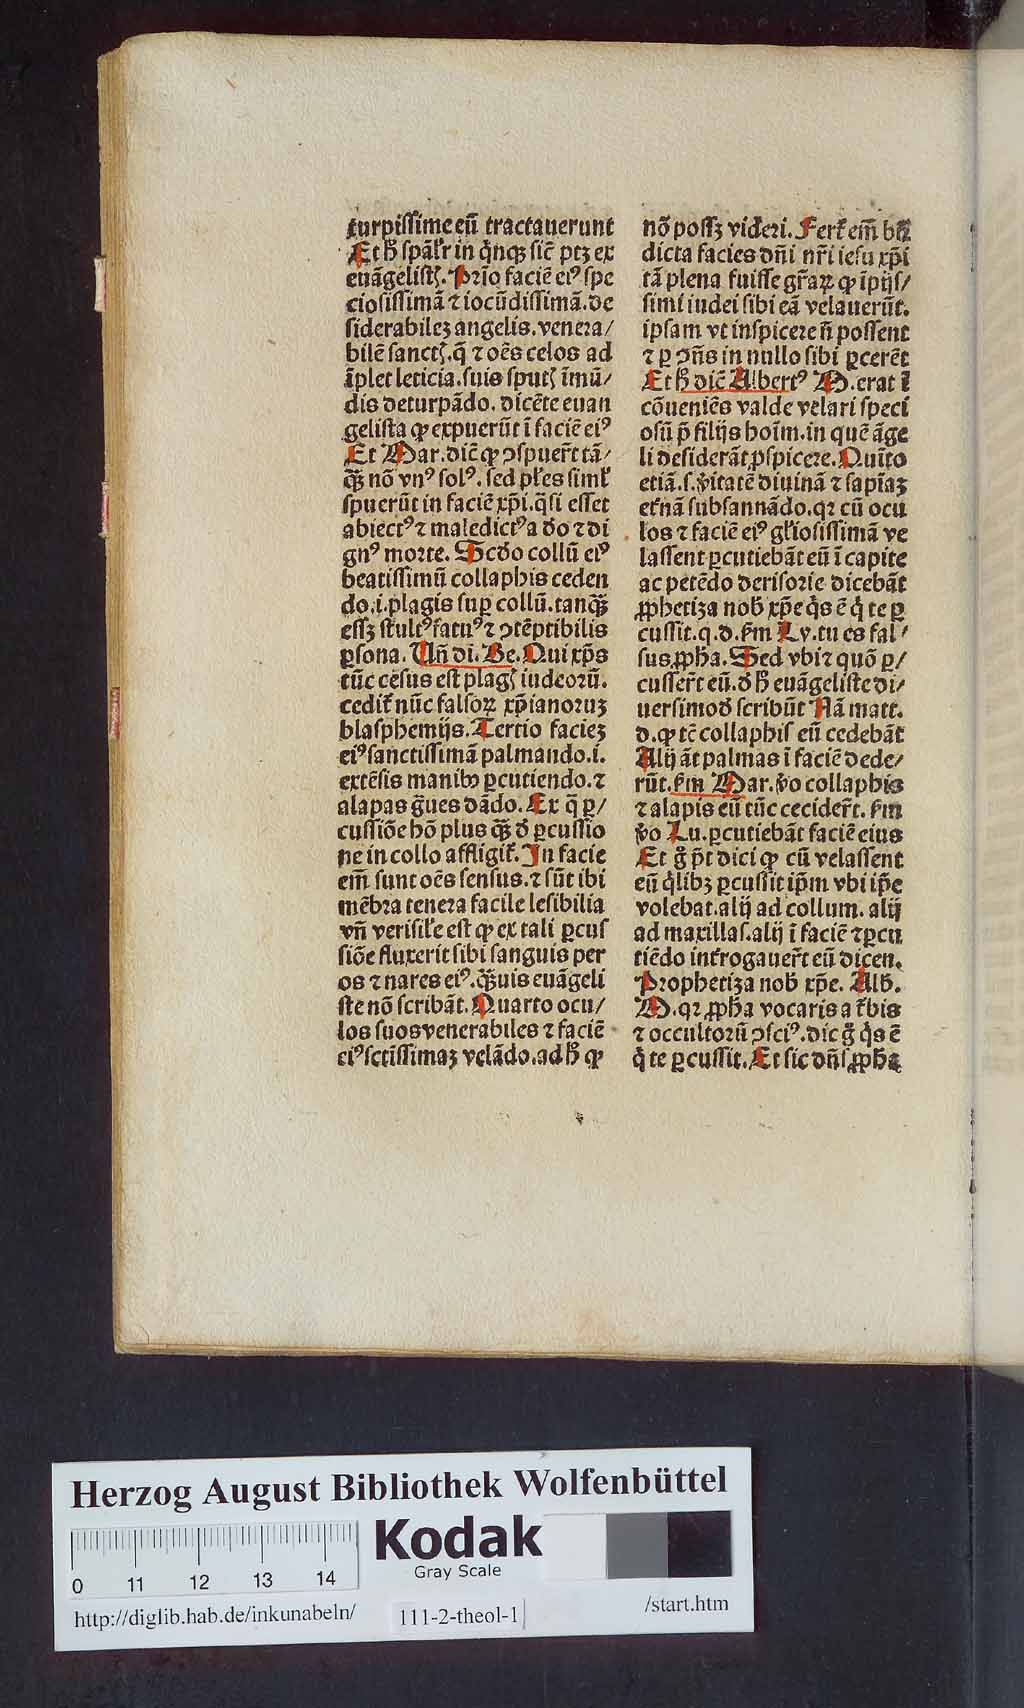 turpissime eū tractauerunt
Et h̄ spāl'r in q̇nqꝫ sic̄ ptꝫ ex
euāgelistꝭ. Prīo faciē eiꝰ spe
ciosissimā ⁊ iocūdissimā. de
siderabileꝫ angelis. venera/
bilē sanctꝭ. q̄ ⁊ oēs celos ad
īplet leticia. suis sputꝭ īmū/
dis deturpādo. dicēte euan
gelista ꝙ expuerūt ī faciē eiꝰ
Et Mar. dic̄ ꝙ ɔspuer̄t tā/
qꝫ̄ nō vnꝰ solꝰ. sed pl'es siml'
spuerūt in faciē xp̄i. q̄si esset
abiectꝰ ⁊ maledictꝰ a deo ⁊ di
gnꝰ morte. Scd̄o collū eiꝰ
beatissimū collaphis ceden
do. i. plagis suꝑ collū. tanqꝫ̄
eēꝫ stultꝰ fatuꝰ ⁊ ɔtēptibilis
ꝑsona. Vn̄ di. Be. Qui xp̄s
tūc cesus est plagꝭ iudeorū.
cedit̄ nūc falsoꝝ xp̄ianoruꝫ
blasphemijs. Tertio facieꝫ
eiꝰ sanctissimā palmando. i.
extēsis manibꝰ ꝑcutiendo. ⁊
alapas g̈ues dādo. Ex q̄ ꝑ/
cussiōe hō plus qꝫ̄ d̄ ꝑcussio
ne in collo affligit̄. In facie
em̄ sunt oēs sensus. ⁊ sūt ibi
mēbra tenera facile lesibilia
vn̄ verisil'e est ꝙ ex tali ꝑcus
siōe fluxerit sibi sanguis per
os ⁊ nares eiꝰ. qꝫ̄uis euāgeli
ste nō scribāt. Quarto ocu/
los suos venerabiles ⁊ faciē
eiꝰ sctīssimaꝫ velādo. ad h̄ ꝙ
nō possꝫ videri. Fert̄ em̄ bn̄
dicta facies dn̄i nr̄i iesu xp̄i
tā plena fuisse gr̄aꝝ ꝙ īpijs/
simi iudei sibi eā velauerūt.
ipsam vt inspicere n̄ possent
⁊ ꝑ ɔn̄s in nullo sibi ꝑcerēt
Et h̄ dic̄ Albertꝰ M. erat ī
cōueniēs valde velari speci
osū p̄ filijs hoīm. in quē āge
li desiderāt ꝓspicere. Quīto
etiā. s. v̄itatē diuinā ⁊ sapīaꝫ
et̄nā subsannādo. qꝛ cū ocu
los ⁊ faciē eiꝰ gl'iosissimā ve
lassent ꝑcutiebāt eū ī capite
ac petēdo derisorie dicebāt
ꝓphetiza nob̄ xp̄e q̇s ē q̇ te ꝑ
cussit. q. d. s̄m Ly. tu es fal/
sus ꝓph̄a. Sed vbi ⁊ quō ꝑ/
cusser̄t eū. d̄ h̄ euāgeliste di/
uersimod̄ scribūt Nā matt.
d. ꝙ tē collaphis eū cedebāt
Alij āt palmas ī faciē dede/
rūt. s̄m Mar. v̄o collaphis
⁊ alapis eū tūc cecider̄t. s̄m
v̄o Lu. ꝑcutiebāt faciē eius
Et g̊ p̄t dici ꝙ cū velassent
eū q̇libꝫ ꝑcussit ip̄m vbi ip̄e
volebat. alij ad collum. alij
ad maxillas. alij ī faciē ⁊ ꝑcu
tiēdo int̄rogauer̄t eū dicen.
Prophetiza nob̄ xp̄e. Alb̄.
M. qꝛ ꝓph̄a vocaris a t̄bis
⁊ occultorū ɔsciꝰ. dic g̊ q̇s ē
q̇ te ꝑcussit. Et sic dn̄s ꝓph̄a
Herzog August Bibliothek Wolfenbüttel
Kodak
Gray Scale
0 11 12 13 14
http://diglib.hab.de/inkunabeln/ 111-2-theol-1 /start.htm